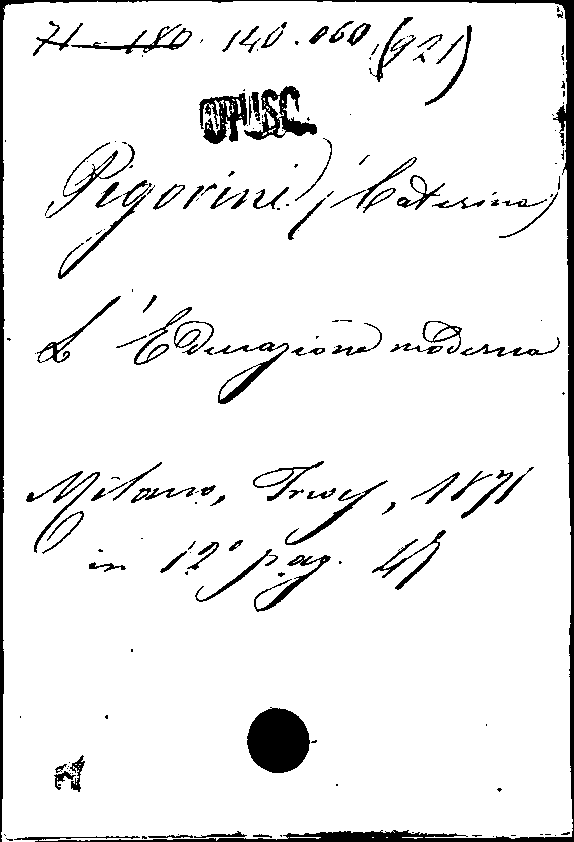 71-180. 140.060.(921)
OPUSC.
Pegorini (Caterina)
L'Educazione moderna
Milano, Treves, 1871
in 12° pag. 47